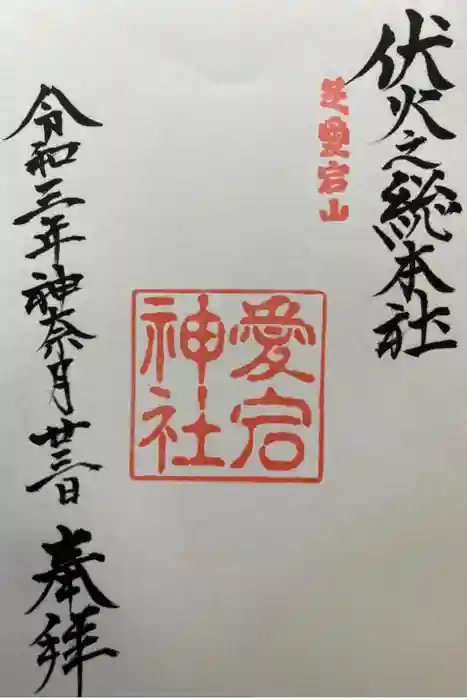 伏火之総本社
芝愛宕山
愛宕
神社
令和三年神奈月廿三日 奉拝